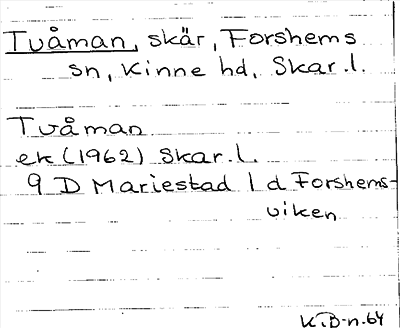 Tvåman, skär, Forshems
sn, Kinne hd, Skar.l.
Tvåman
ek (1962) Skar.l.
9 D Mariestad 1 d Forshems-
viken
K.D-n.64